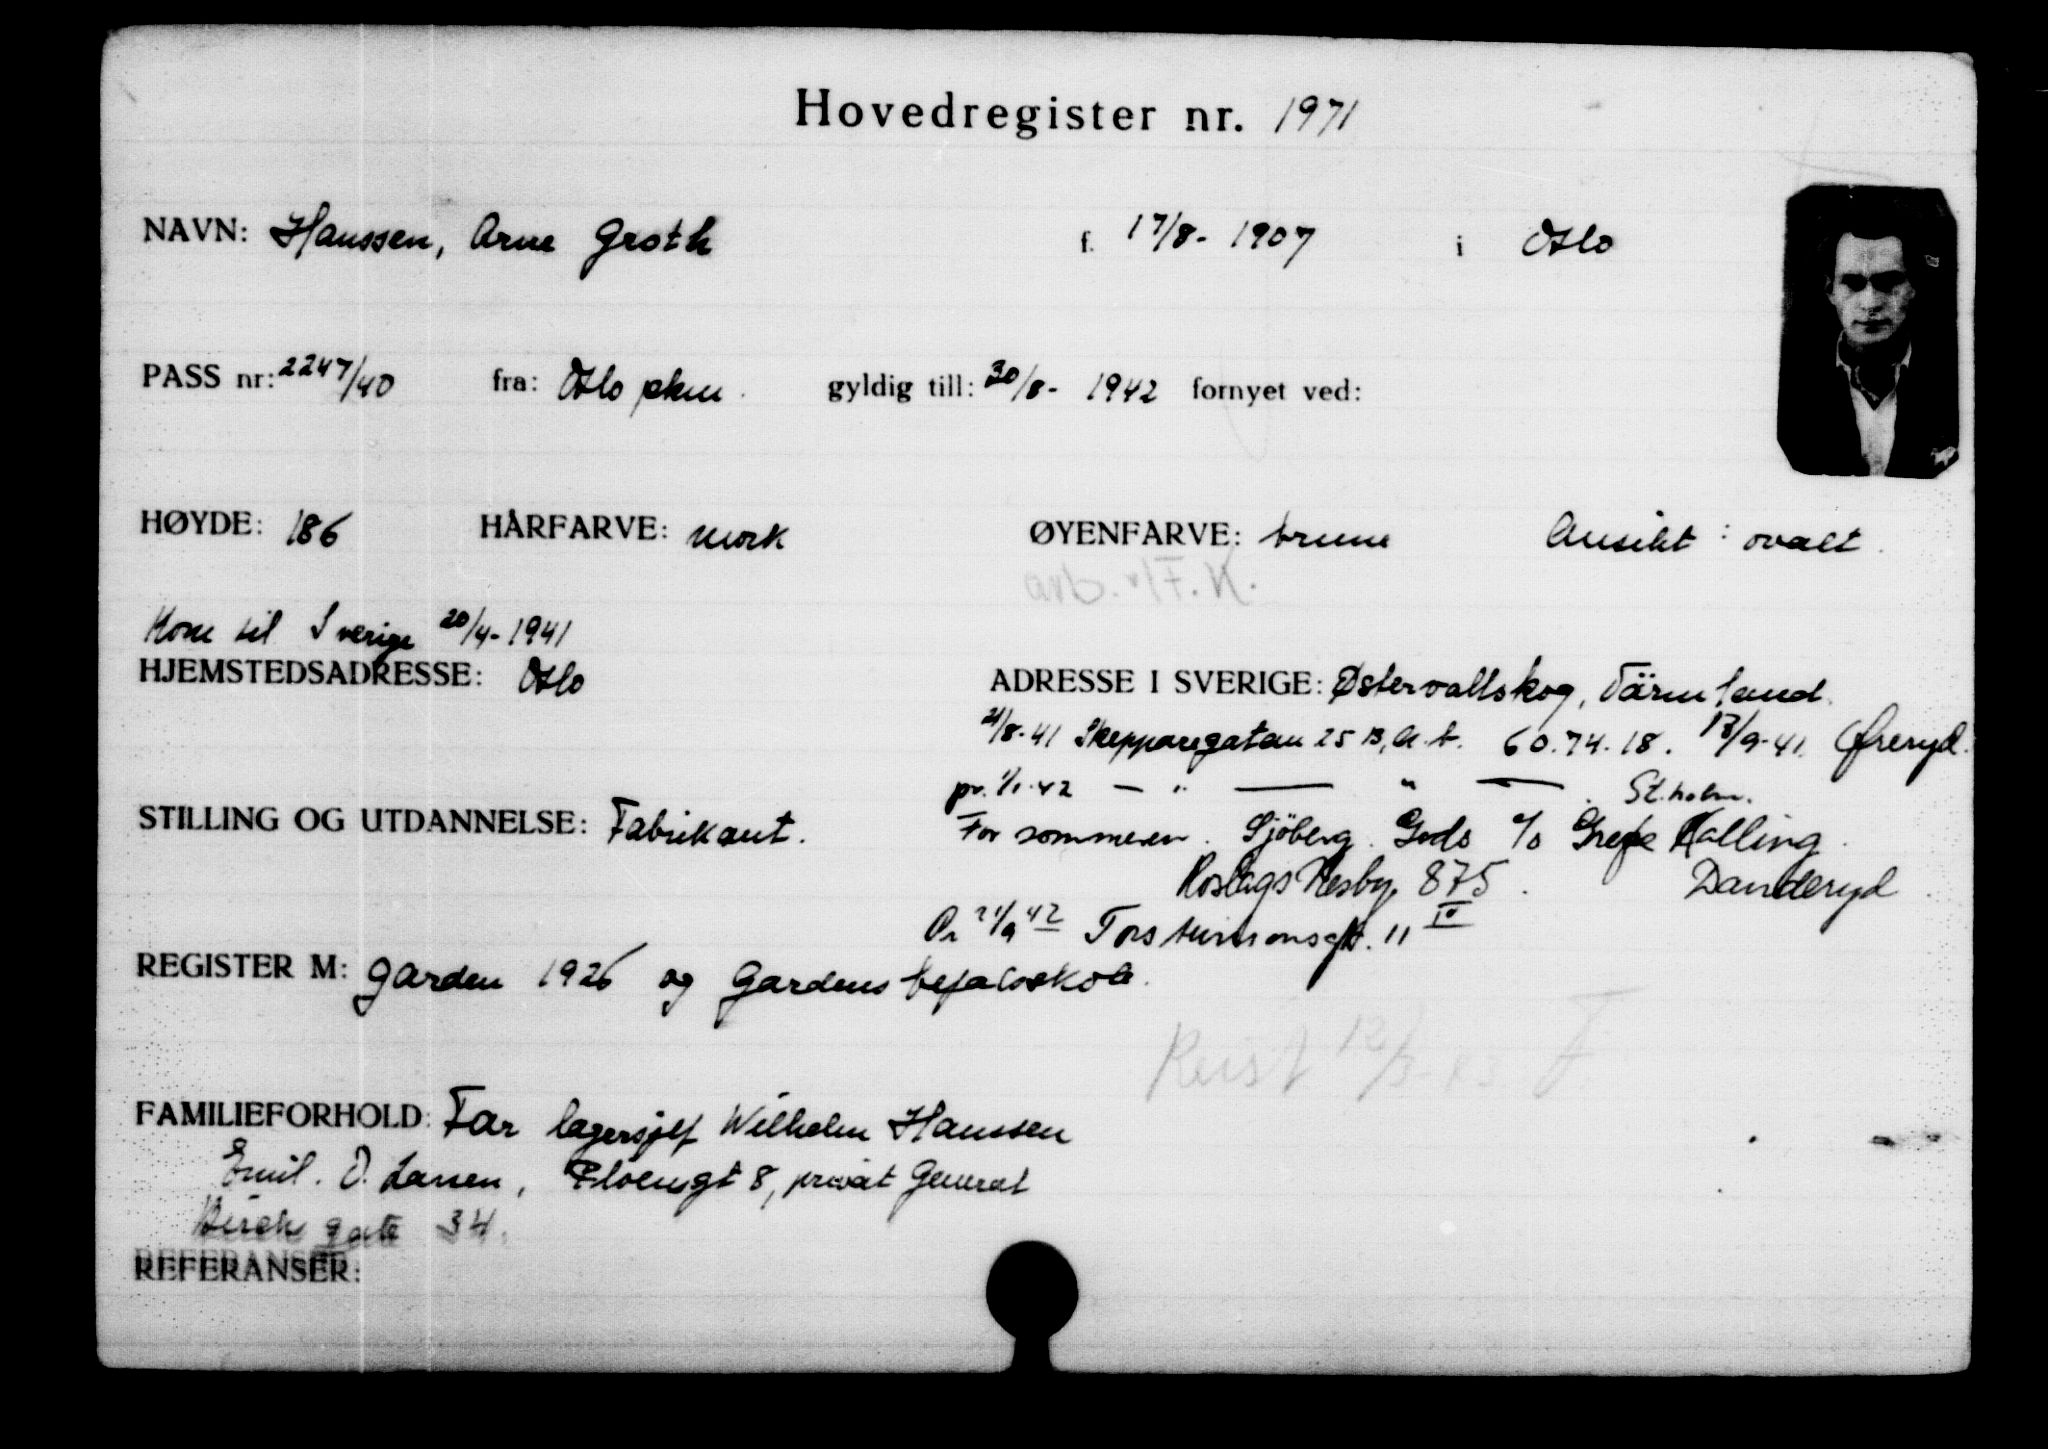 Hovedregister nr. 1971
NAVN: Hanssen, Arne Groth f. 17/8- 1907 i Oslo
PASS nr: 2247/40 fra: Oslo pkm. gyldig till: 30/8- 1942 fornyet ved:
HØYDE: 186 HÅRFARVE: mørk ØYENFARVE: brune Ansikt: ovalt.
arb. v/F.K.
Kom til Sverige 20/4-1941
HJEMSTEDSADRESSE: Oslo ADRESSE I SVERIGE: Østervallskog, Värmland.
21/8-41 Skepparegatan 25 B, 60.74.18. 13/9-41. Øreryd.
pr. 1/1-42 — " — " — . St.holm.
STILLING OG UTDANNELSE: Fabrikant. For sommeren. Sjöberg. Gods c/o Greve Kalling.
Roslags Nesby, 875. Danderyd.
Pr 21/9 42 Torstensonsgt. 11 IV
REGISTER M: Garden 1926 og Gardens befalsskole.
Reist 12/3-43. F.
FAMILIEFORHOLD: Far lagersjef Wilhelm Hanssen
Emil. O. Larsen, Ploensgt 8, privat General
Birchs gate 34.
REFERANSER: